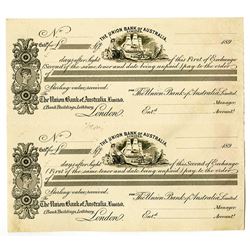 THE UNION BANK OF AUSTRALIA,
No
189
Exch. for
days after sight of this First of Exchange
(Second of the same tenor and date being unpaid) pay to the order
of
Sterling value received.
To The Union Bank of Australia, Limited,
1, Bank Buildings, Lothbury,
London.
For The Union Bank of Australia Limited.
Manager.
Entd.
Accountt.
THE UNION BANK OF AUSTRALIA,
No
189
Exch. for
days after sight of this Second of Exchange
(First of the same tenor and date being unpaid) pay to the order
of
Sterling value received.
To The Union Bank of Australia, Limited,
1, Bank Buildings, Lothbury,
London.
For The Union Bank of Australia Limited.
Manager.
Entd.
Accountt.